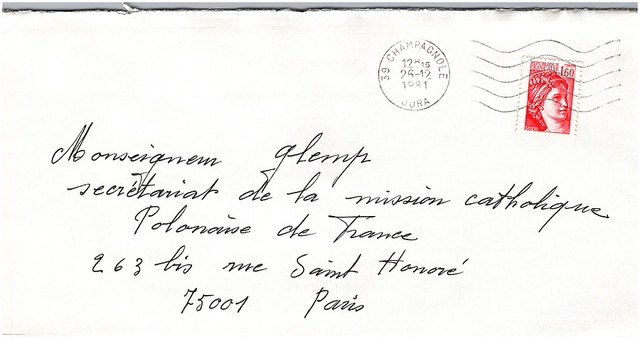 39 CHAMPAGNOLE
12H16
26-12
1981
JURA
1,60
Monseigneur Glemp
secrétariat de la mission catholique
Polonaise de France
263 bis rue Saint Honoré
75001 Paris